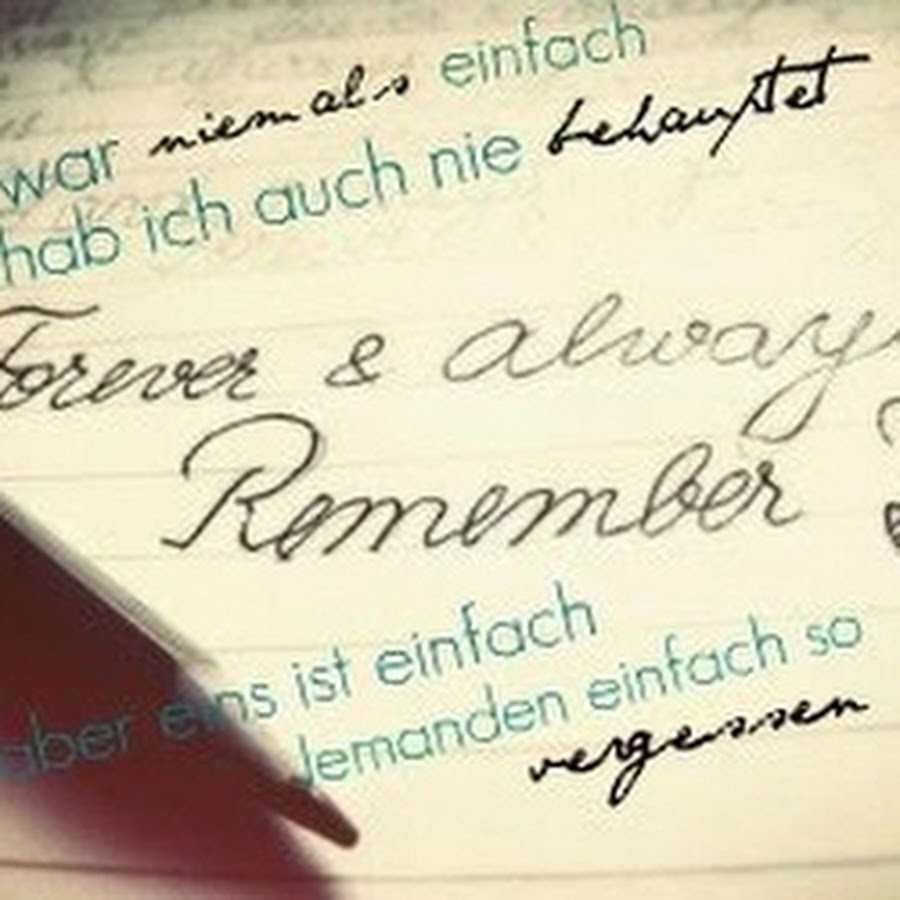 war niemals einfach
hab ich auch nie behauptet
Forever & always
Remember
aber eins ist einfach
Jemanden einfach so
vergessen